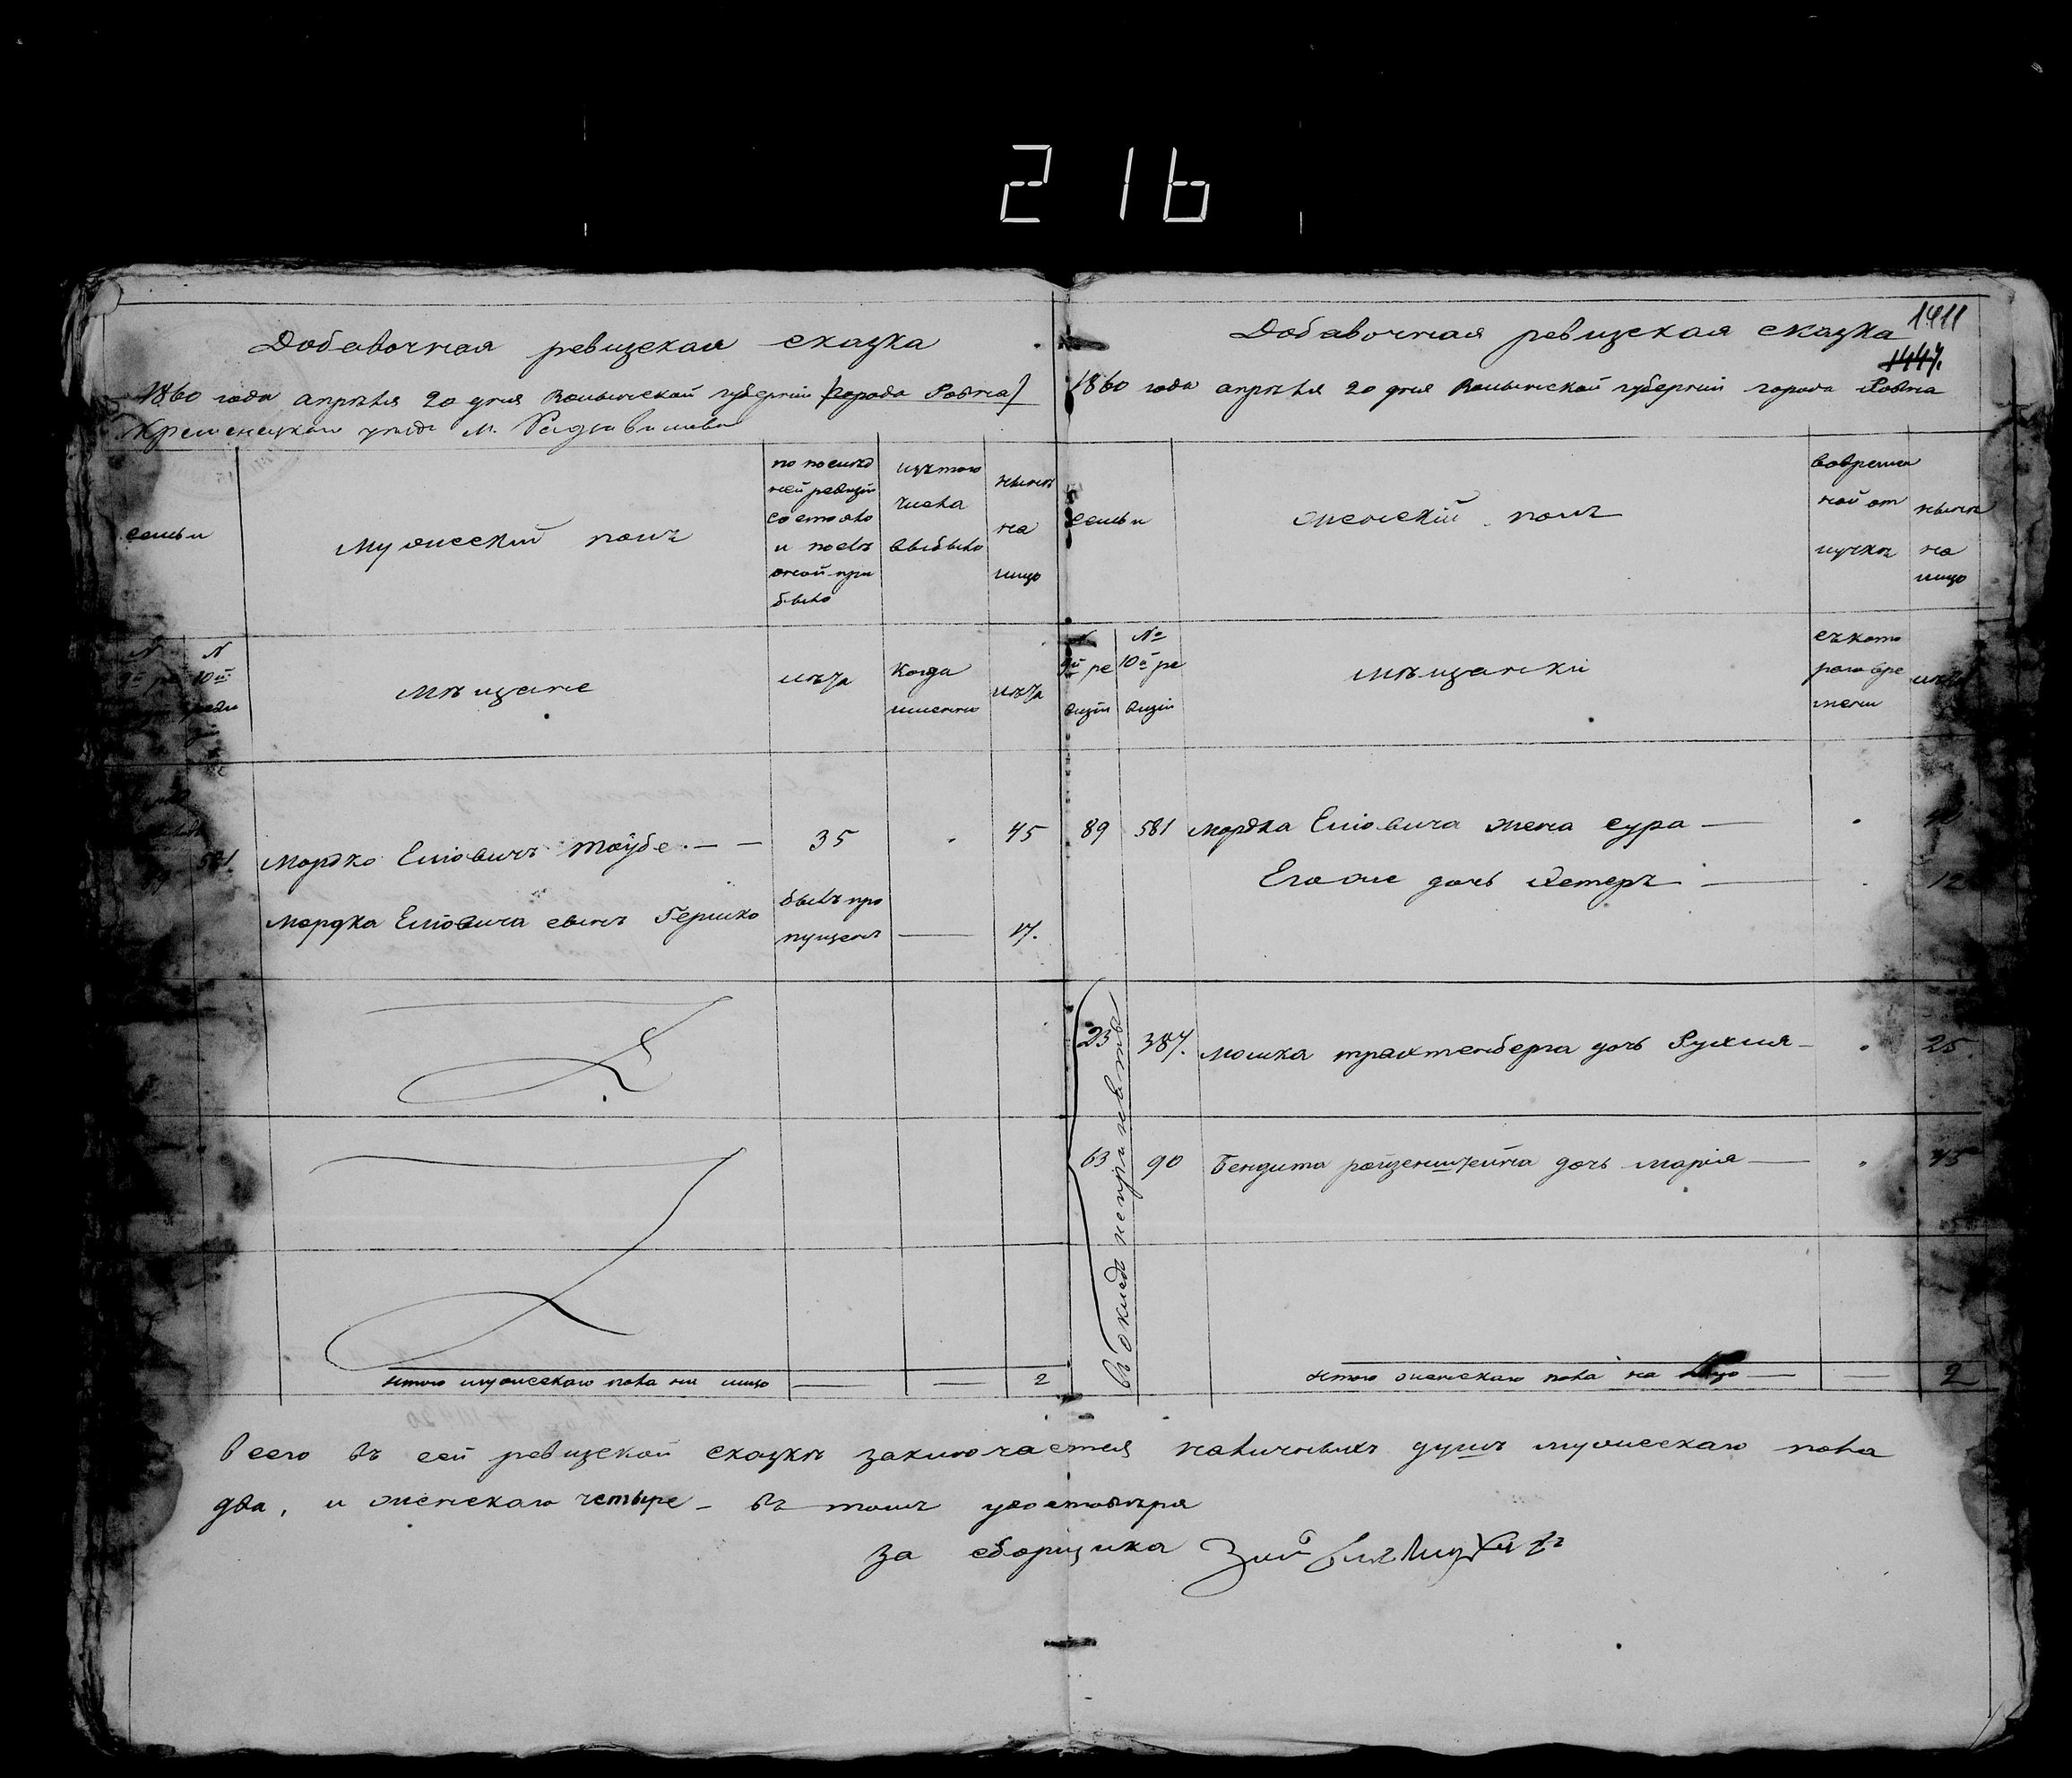 216
Добавочная ревизская сказка
1860 года апрѣля 20 дня Волынской губерніи [города Ровна]
Кременецкаго уѣзда м. Радзивилова
семьи
мужескій полъ
по послѣд
ней ревизіи
состояло
и послѣ
оной при
было
изъ того
числа
выбыло
нынѣ
на
лицо
N
9й ре
N
10й
мѣщане
лѣта
Когда
именно
лѣта
581. Мордко Еліовичъ Таубе — — 35 45
Мордка Еліовича сынъ Гершко былъ про
пущенъ — 17.
итого мужескаго пола на лицо — — 2
1411
1447.
Добавочная ревизская сказка
1860 года апрѣля 20 дня Волынской губерніи города Ровна
семьи
женскій полъ
вовремен
ной от
лучкѣ
нынѣ
на
лицо
N
9й ре
визіи
No
10й ре
визіи
мѣщанки
съ кото
раго вре
мени
лѣта
89 581 Мордка Еліовича жена Сура —
Его же дочь Эстеръ — 12
въ окладъ непринѣты
23 387. Мошка Трахтенберга дочь Рухля — 25
63 90 Бендита Ройзенштейна дочь Марія — 45
Итого женскаго пола на лицо — — 2
Всего въ сей ревизской сказкѣ заключается наличныхъ душъ мужескаго пола
два, и женскаго четыре – въ томъ удостовѣря
за сборщика